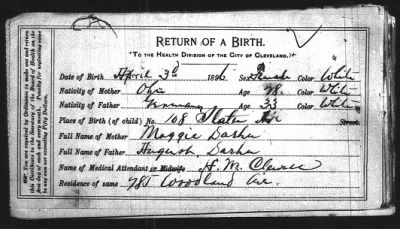 RETURN OF A BIRTH.
"To the Health Division of the City of Cleveland."
Date of Birth April 3d 1896 Sex Female Color White
Nativity of Mother Ohio Age 28 Color White
Nativity of Father Germany Age 33 Color White
Place of Birth (of child) No. 108 Slater Ave Street
Full Name of Mother Maggie Dasha
Full Name of Father August Dasha
Name of Medical Attendant or Midwife H. M.
Residence of same 785 Woodland Ave.
You are required by Ordinance to make out and return
this Certificate to the Secretary of the Board of Health on the
first day of each and every month. Penalty for neglecting same
not exceeding Fifty Dollars.